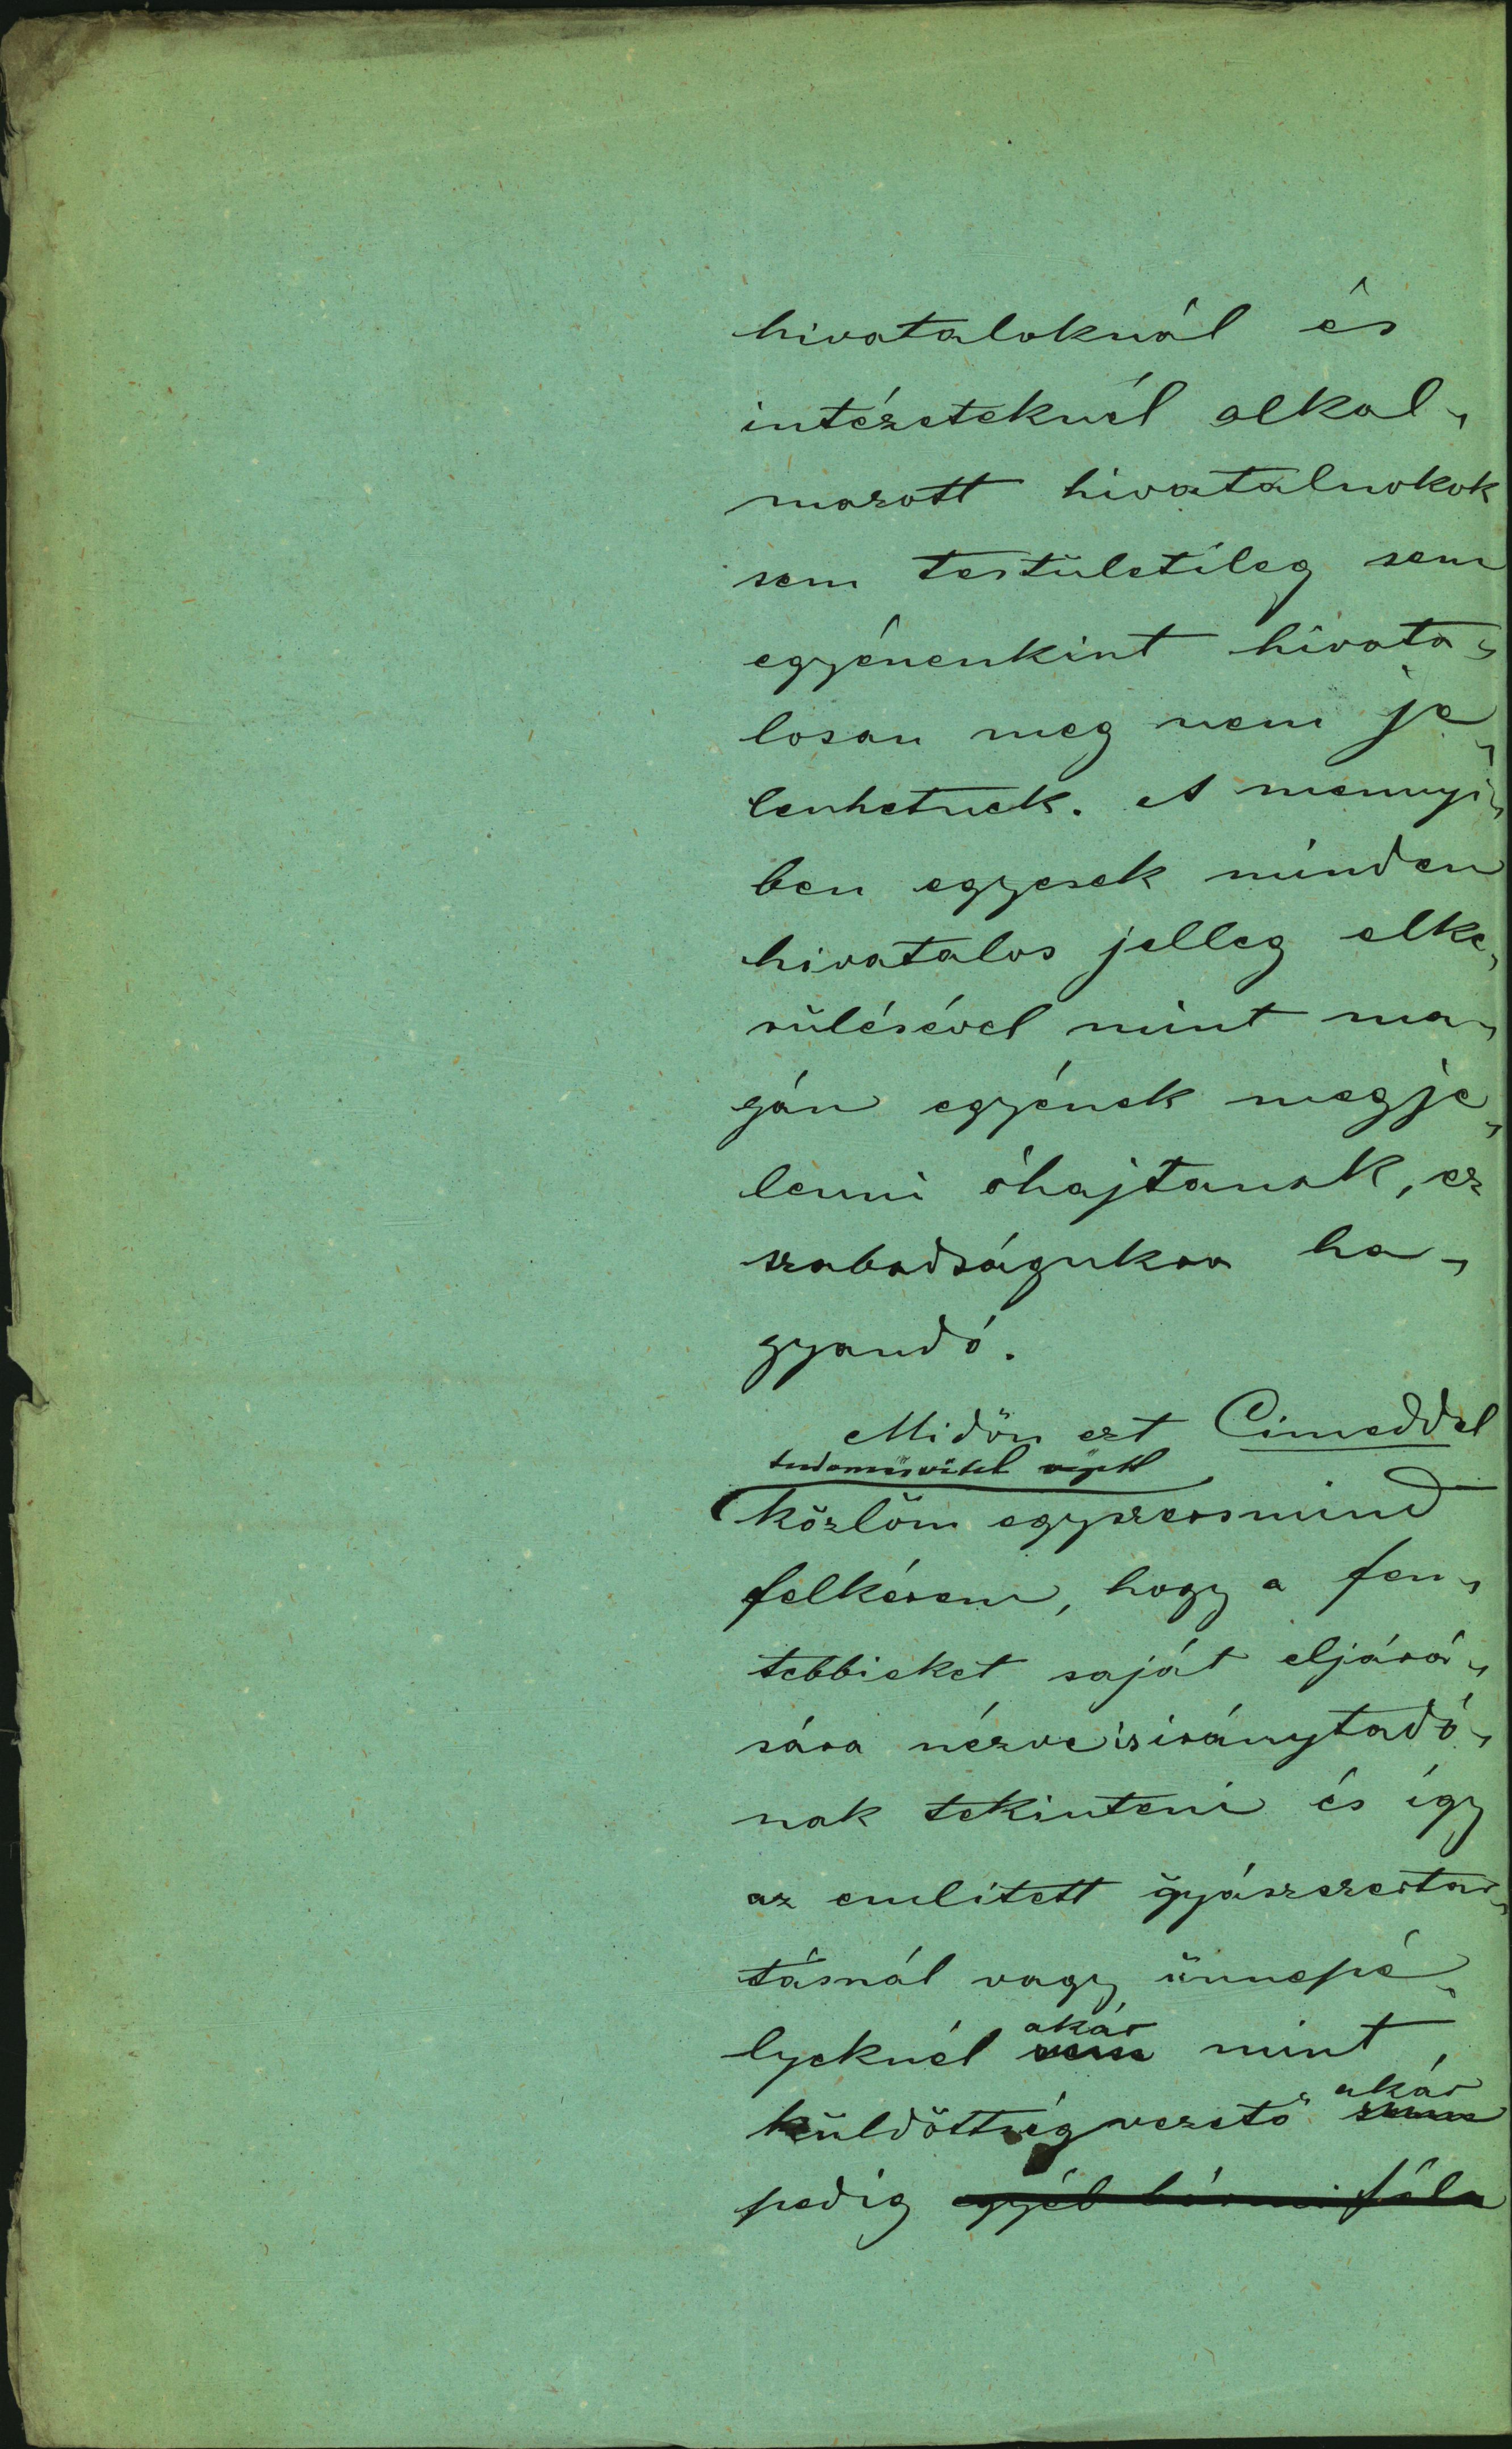 hivataloknál és
intézeteknél alkal-
mazott hivatalnokok
sem testületileg sem
egyénenkint hivata-
losan meg nem je-
lenhetnek. A mennyi-
ben egyesek minden
hivatalos jelleg elke-
rülésével mint ma-
gán egyének megje-
lenni óhajtanak, ez
szabadságukra ha-
gyandó.
Midőn ezt Cimeddel
tudomásvétel végett
közlöm egyszersmind
felkérem, hogy a fen-
tebbieket saját eljárá-
sára nézve is iránytadó-
nak tekinteni és így
az emlitett gyászszertar-
tásnál vagy ünnepé-
akár
lyeknél sem mint
akár
küldöttség vezető sem
pedig egyéb bármi féle